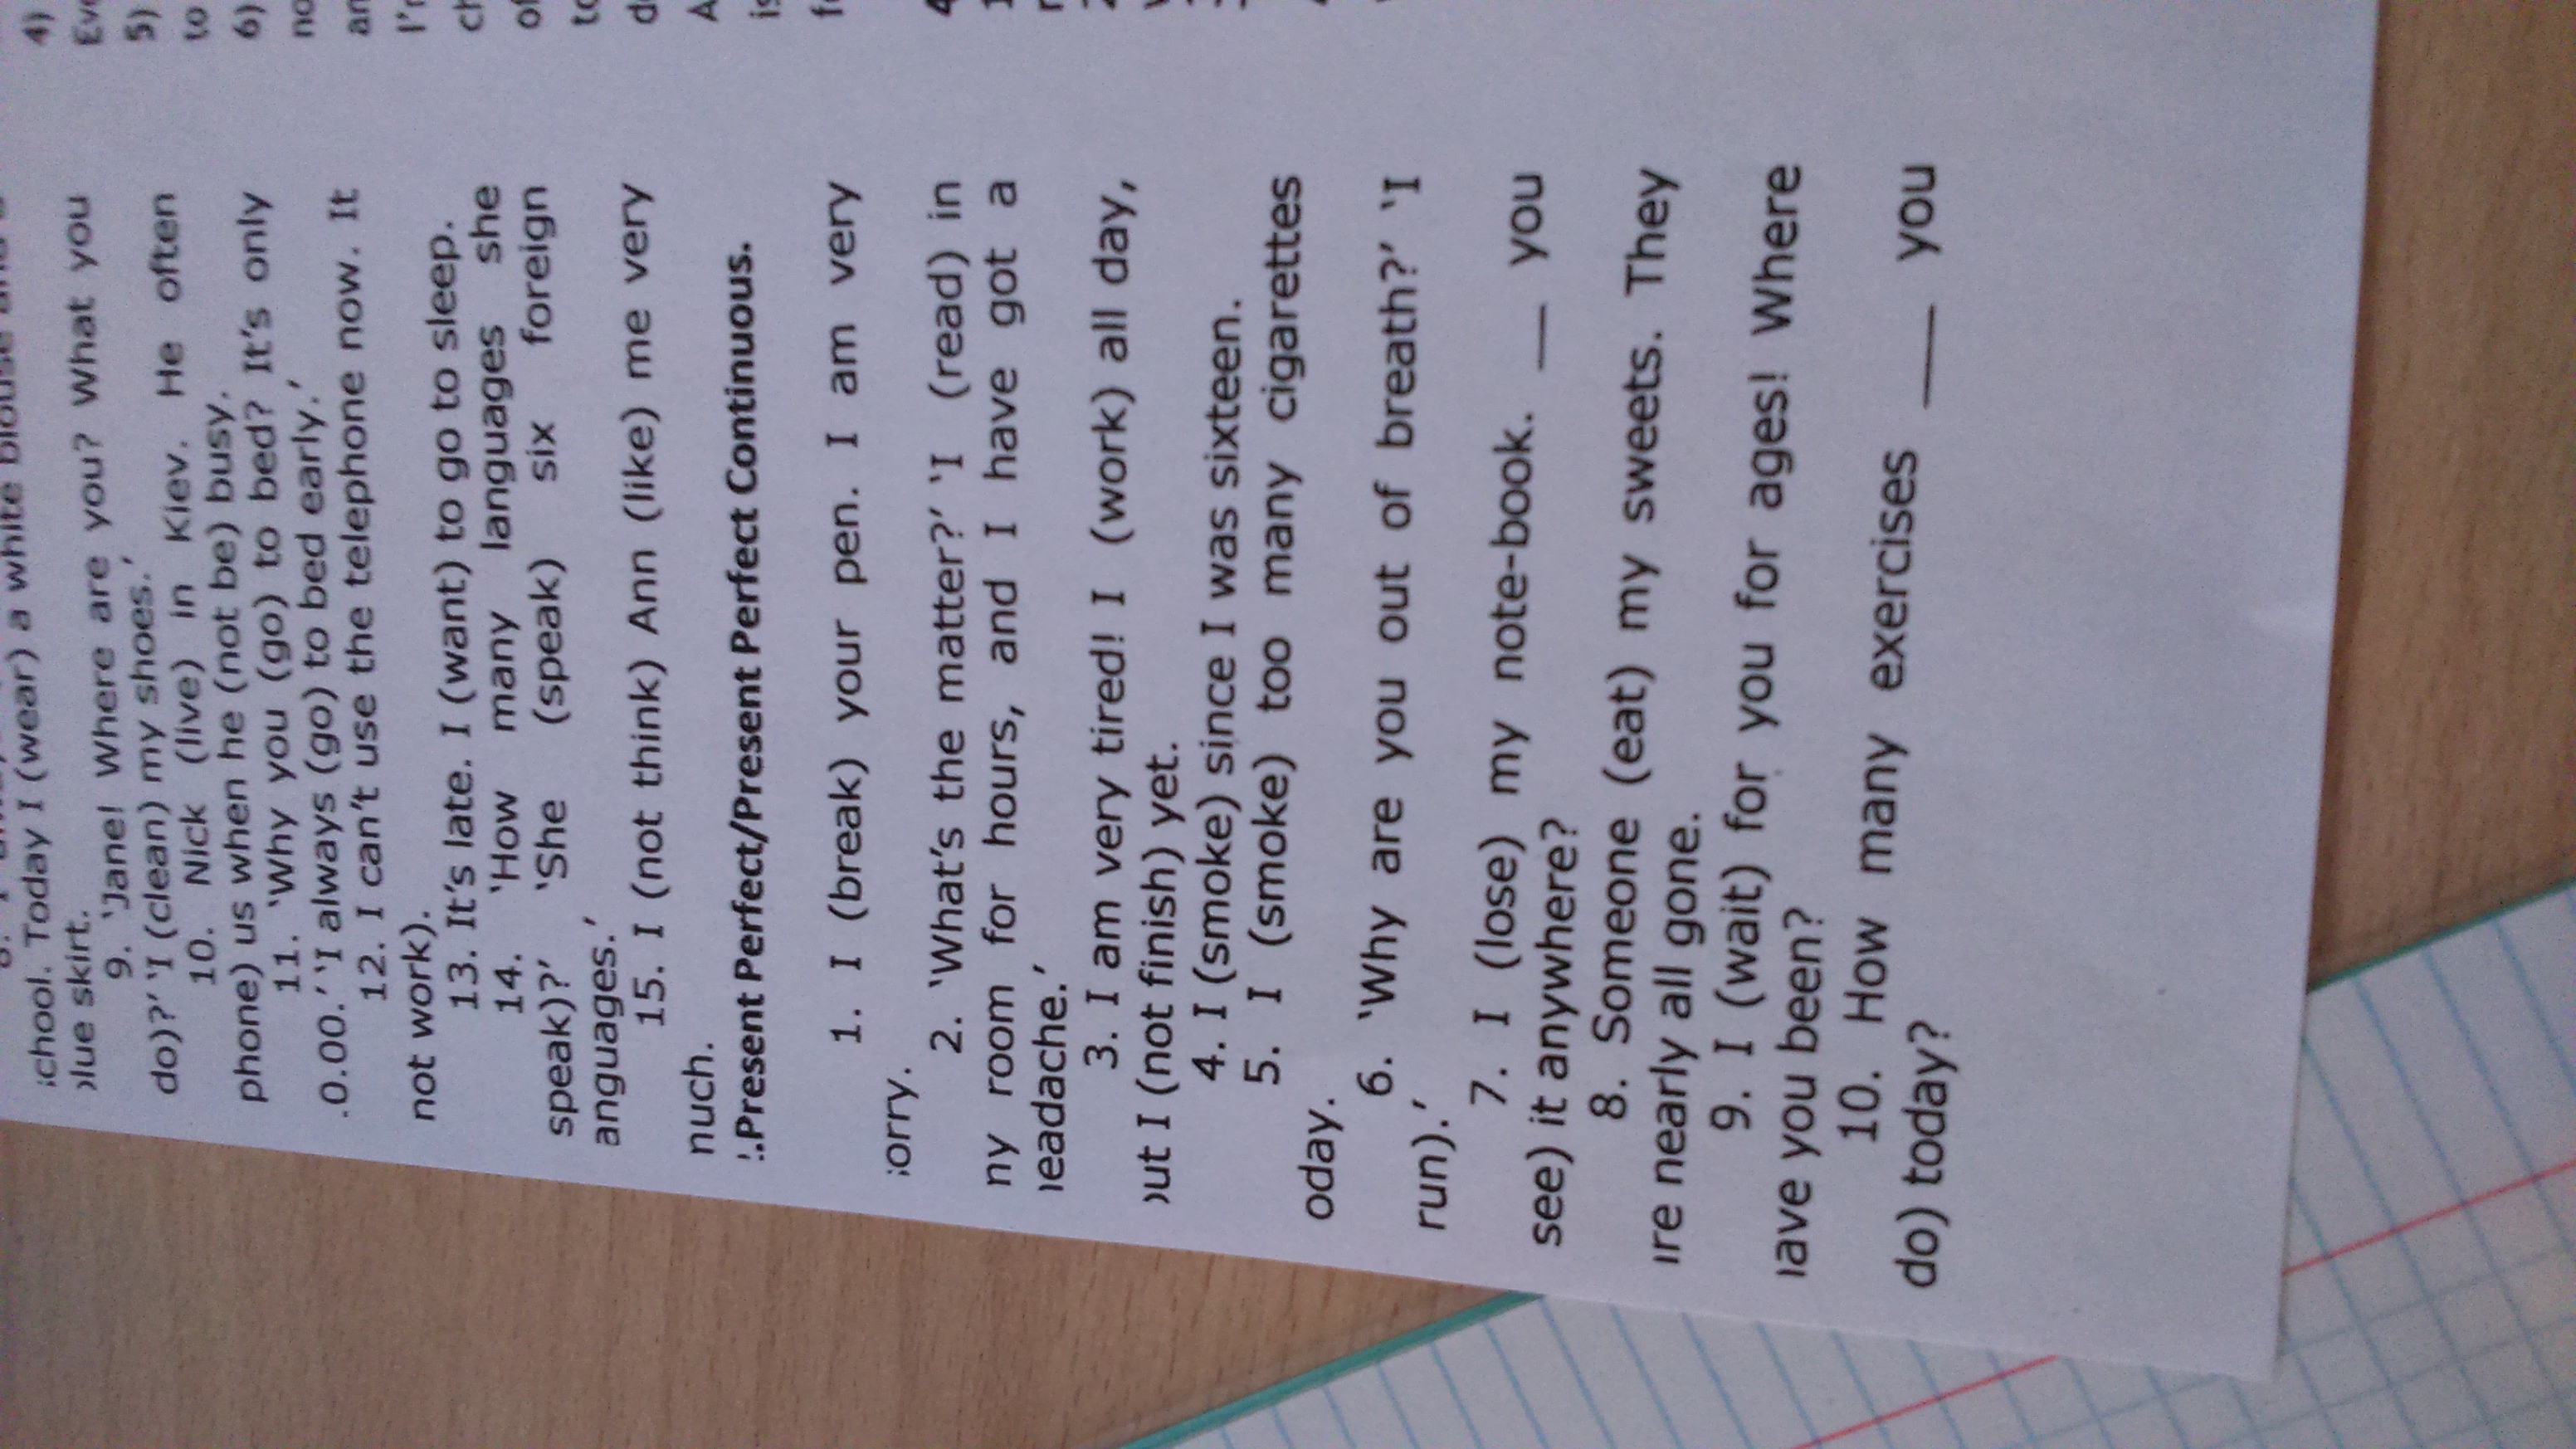 chool. Today I (wear) a white blouse and a
lue skirt.
9. 'Jane! Where are you? What you
do)?' 'I (clean) my shoes.'
10. Nick (live) in Kiev. He often
phone) us when he (not be) busy.
11. 'Why you (go) to bed? It's only
.0.00.' 'I always (go) to bed early.'
12. I can't use the telephone now. It
not work).
13. It's late. I (want) to go to sleep.
14. 'How many languages she
speak)?' 'She (speak) six foreign
anguages.'
15. I (not think) Ann (like) me very
nuch.
.Present Perfect/Present Perfect Continuous.
1. I (break) your pen. I am very
orry.
2. 'What's the matter?' 'I (read) in
ny room for hours, and I have got a
eadache.'
3. I am very tired! I (work) all day,
ut I (not finish) yet.
4. I (smoke) since I was sixteen.
5. I (smoke) too many cigarettes
oday.
6. 'Why are you out of breath?' 'I
run).'
7. I (lose) my note-book. __ you
see) it anywhere?
8. Someone (eat) my sweets. They
re nearly all gone.
9. I (wait) for you for ages! Where
ave you been?
10. How many exercises __ you
do) today?
4)
5)
to
6)
I'm